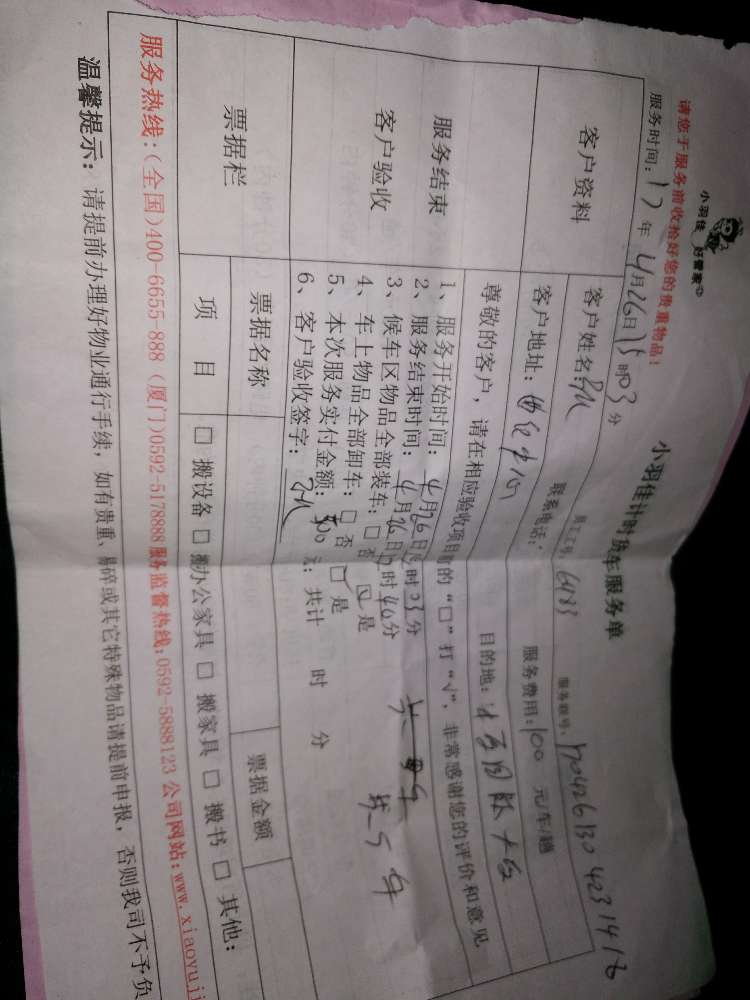 小羽佳 好管家
请您于服务前收拾好您的贵重物品!
小羽佳计时货车服务单
服务时间: 17年4月26日15时03分
员工工号: 6483
服务联号:
客户资料
客户姓名
联系电话:
服务费用: 100 元/车/趟
客户地址:
目的地:
尊敬的客户, 请在相应验收项目前的“□”打“√”, 非常感谢您的评价和意见
服务结束
客户验收
1、服务开始时间: 4月26日15时03分
2、服务结束时间: 4月26日 时40分
3、候车区物品全部装车: □ 否 □ 是
4、车上物品全部卸车: □ 否 □ 是
5、本次服务实付金额: 500 元; 共计 时 分
6、客户验收签字:
共 5车
票据栏
票据名称
票据金额
项 目
□ 搬设备 □ 搬办公家具 □ 搬家具 □ 搬书 □ 其他:
服务热线: (全国)400-6655-888 (厦门)0592-5178888 服务监督热线: 0592-5888123 公司网站: www.xiaoyuji
温馨提示: 请提前办理好物业通行手续, 如有贵重、易碎或其它特殊物品请提前申报, 否则我司不予负